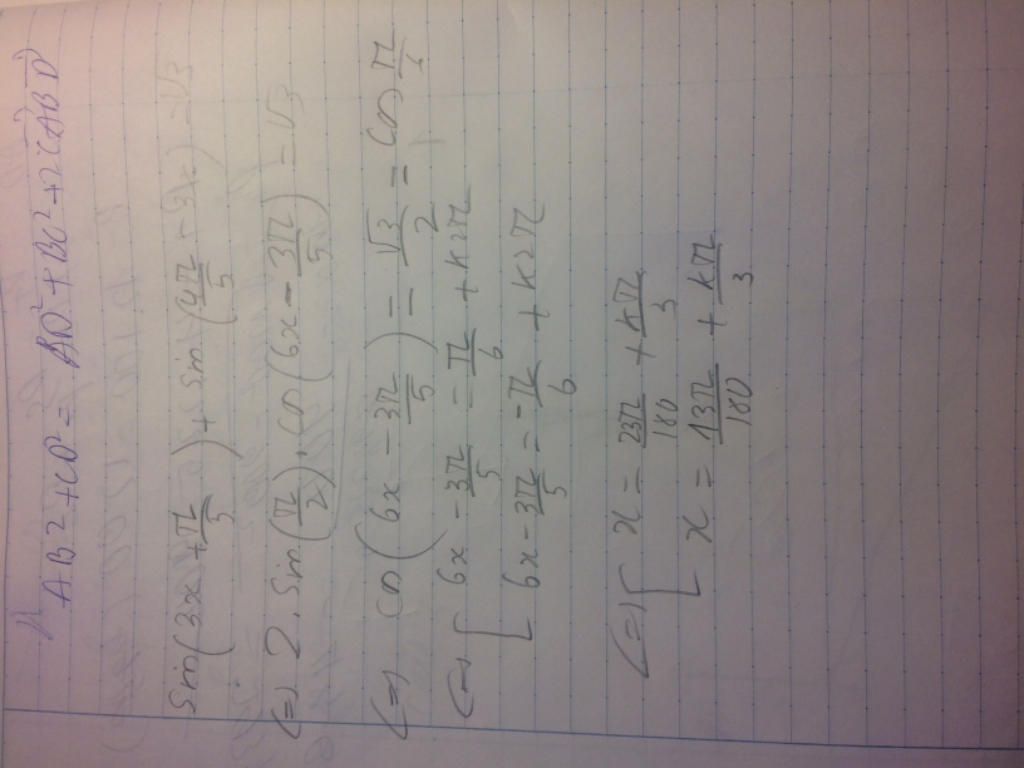 AB² + CD² = AD² + BC² + 2CA BD
sin(3x + π/5) + sin(4π/5 + 3x) = √3
<=> 2.sin(π/2).cos(6x - 3π/5) = √3
<=> cos(6x - 3π/5) = √3/2 = cos π/6
<=> [ 6x - 3π/5 = π/6 + k2π
6x - 3π/5 = -π/6 + k2π
<=> [ x = 23π/180 + kπ/3
x = 13π/180 + kπ/3